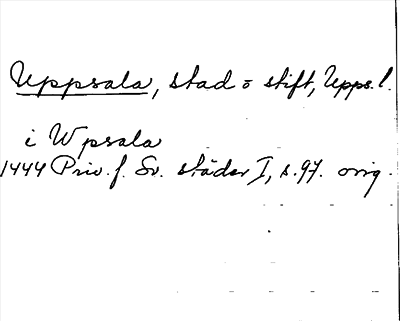 Uppsala, stad o stift, Upps. l.
i Wpsala
1444 Priv. f. Sv. städer I, s. 97. orig.